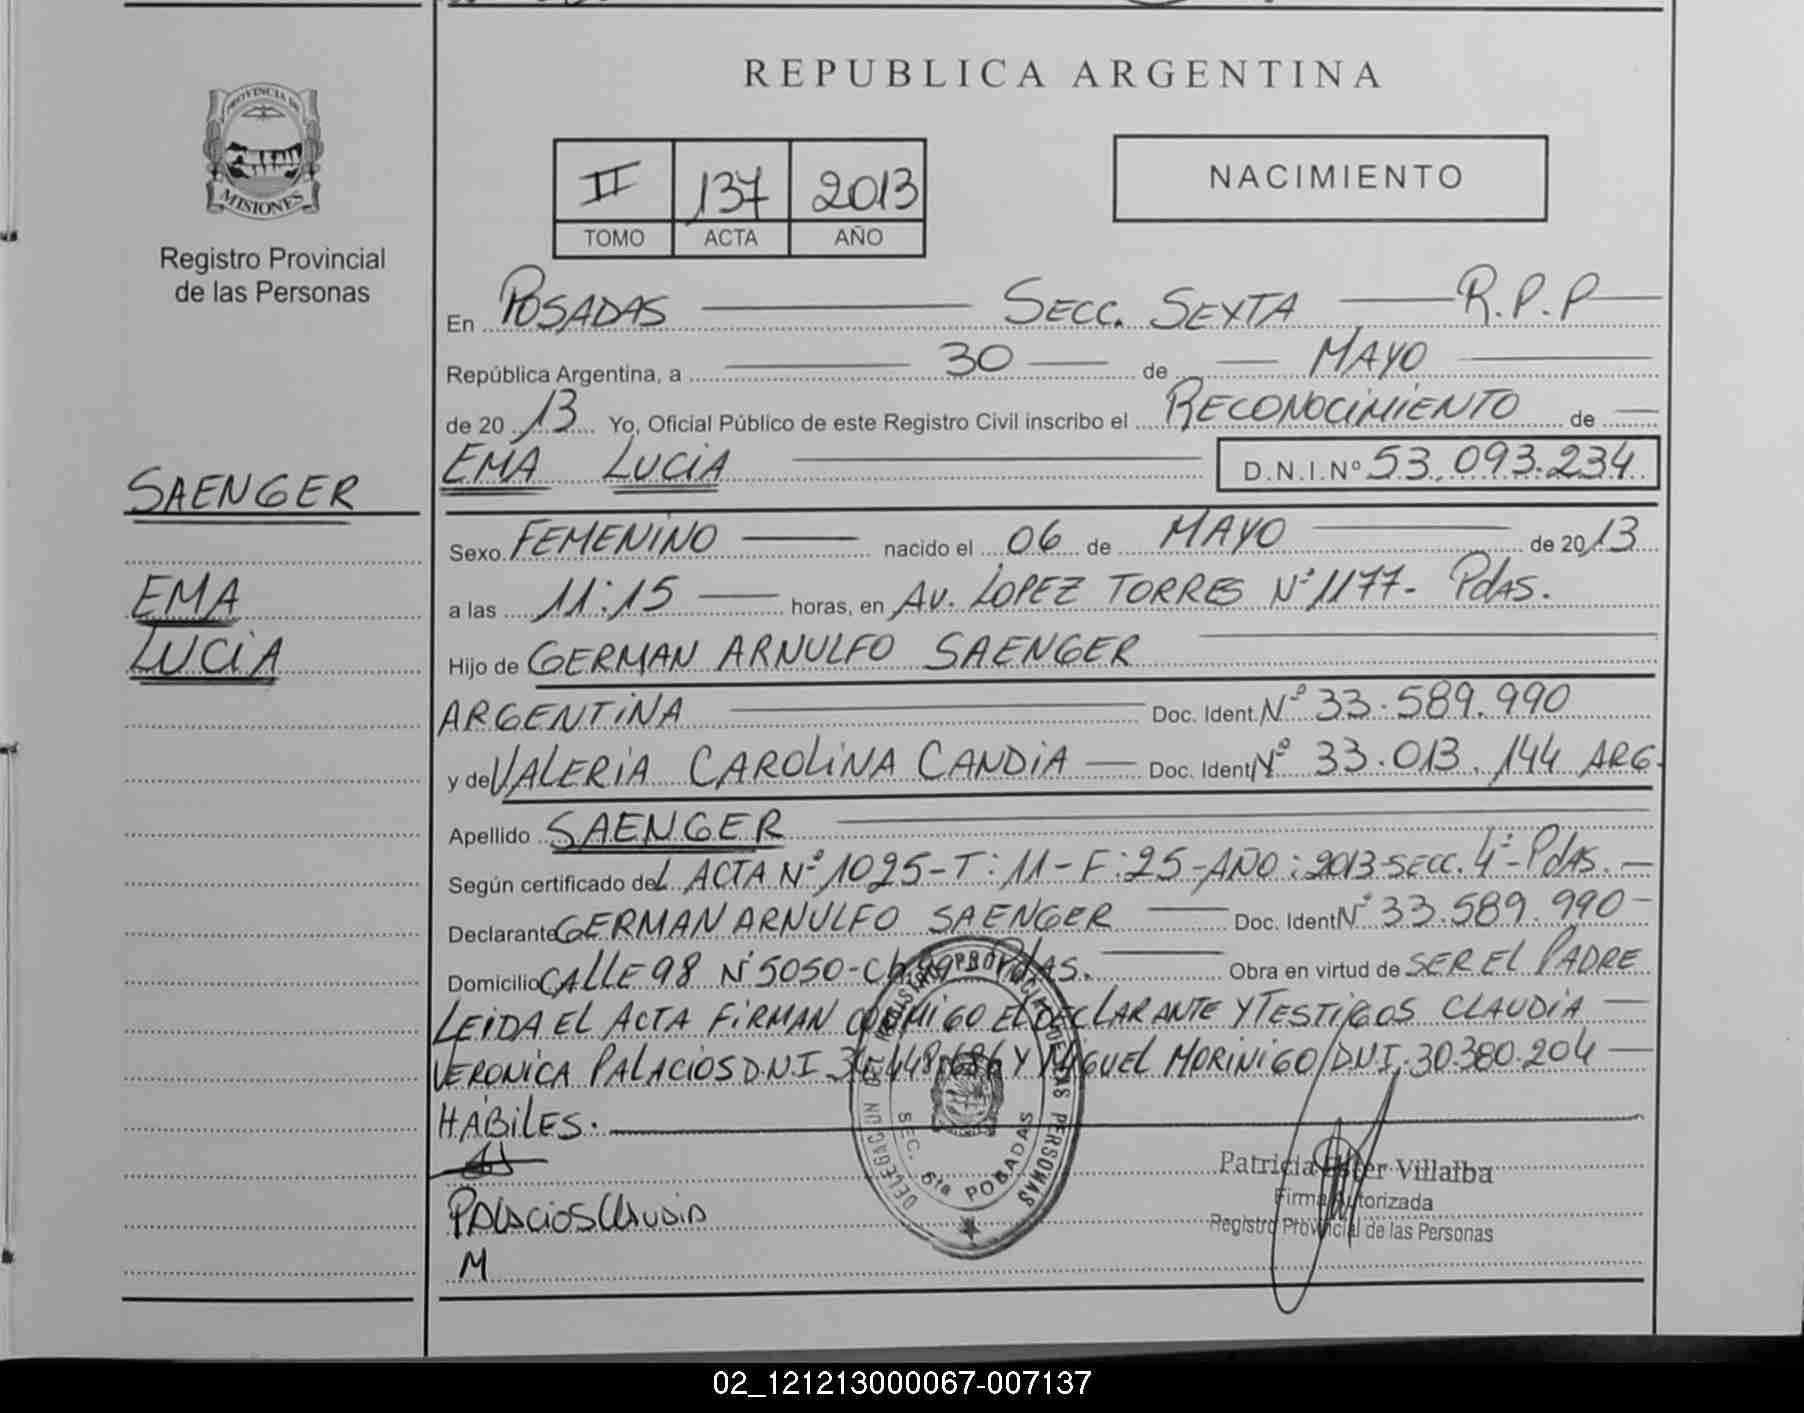 REPUBLICA ARGENTINA
PROVINCIA DE
MISIONES
Registro Provincial
de las Personas
II 137 2013
TOMO ACTA AÑO
NACIMIENTO
En POSADAS SECC. SEXTA R.P.P
República Argentina, a 30 de MAYO
de 20 13 Yo, Oficial Público de este Registro Civil inscribo el RECONOCIMIENTO de
EMA LUCIA D.N.I.Nº 53.093.234
SAENGER
EMA
LUCIA
Sexo FEMENINO nacido el 06 de MAYO de 20 13
a las 11:15 horas, en AV. LOPEZ TORRES Nº 1177- PdAS.
Hijo de GERMAN ARNULFO SAENGER
ARGENTINA Doc. Ident. Nº 33.589.990
y de VALERIA CAROLINA CANDIA Doc. Ident Nº 33.013.144 ARG.
Apellido SAENGER
Según certificado del ACTA Nº 1025-T:11-F:25-AÑO:2013-SECC. 4º-PdAS.
Declarante GERMAN ARNULFO SAENGER Doc. Ident Nº 33.589.990
Domicilio CALLE 98 Nº 5050- PdAS. Obra en virtud de SER EL PADRE
LEIDA EL ACTA FIRMAN CONMIGO EL DECLARANTE Y TESTIGOS CLAUDIA
VERONICA PALACIOS D.N.I Y MIGUEL MORINIGO D.N.I. 30.380.204
HABILES.
DELEGACION DEL REGISTRO PROVINCIAL DE LAS PERSONAS
SEC. 6ta POSADAS
Patricia Ester Villalba
Firma Autorizada
Registro Provincial de las Personas
PALACIOS CLAUDIA
M
02_121213000067-007137